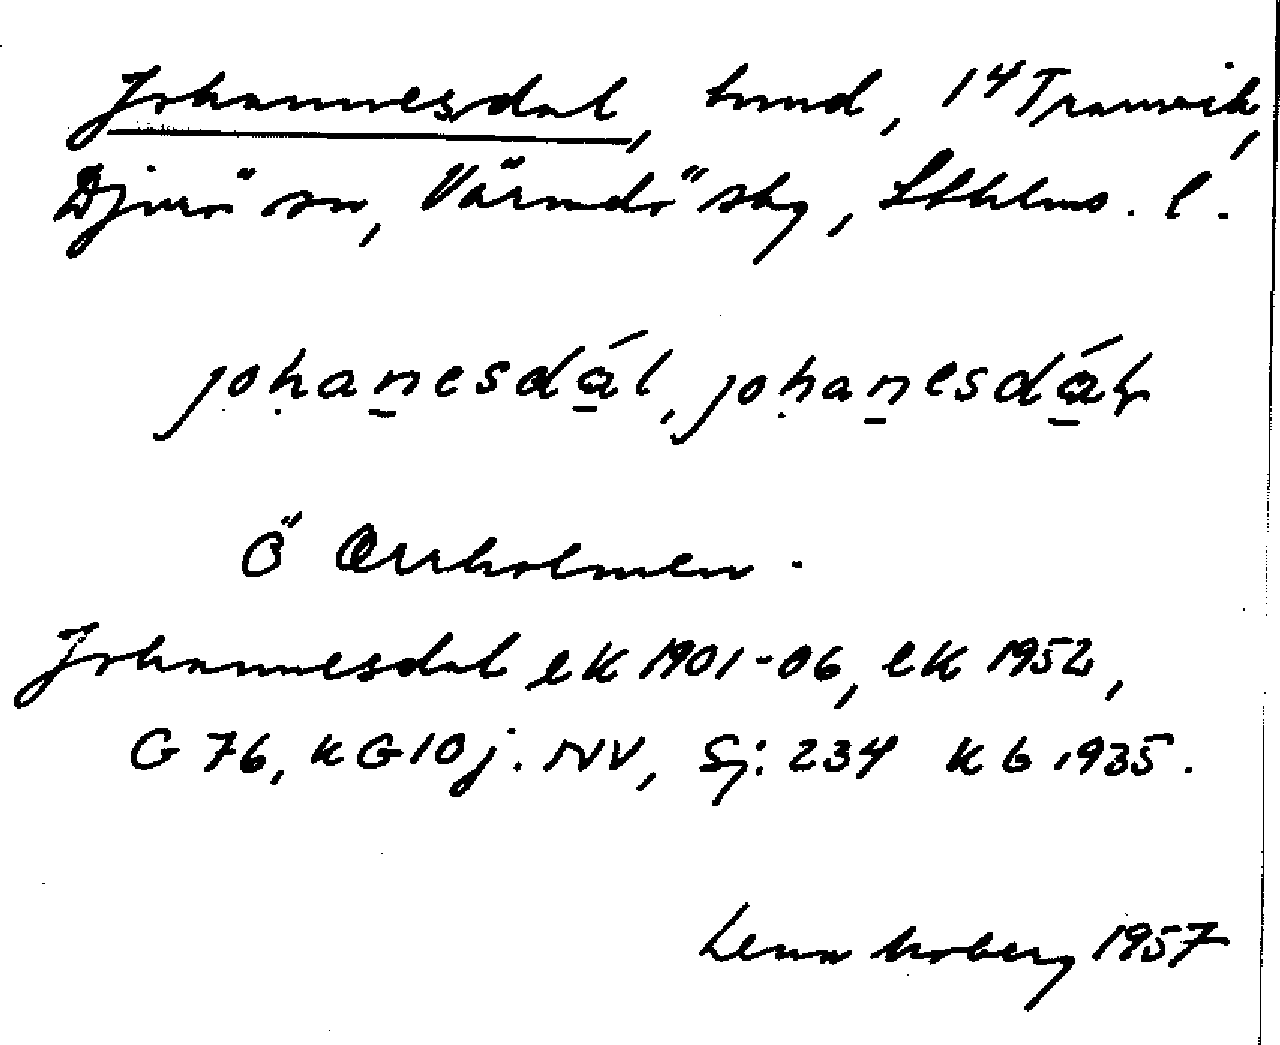 Johannesdal, hmd, 1⁴ Tranvik,
Djurö sn, Värmdö skg, Sthlms. l.
johan̲esdá̲l, johan̲esdá̲
Ö Orrholmen.
Johannesdal ek 1901-06, ek 1952,
G 76, KG 10j. NV, Sj: 234 Kb 1935.
Lena Moberg 1957